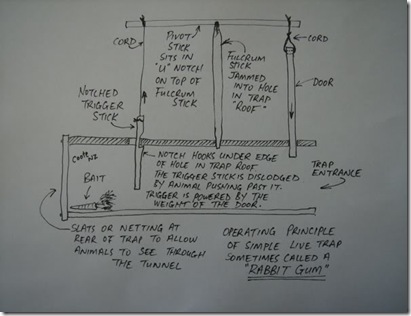 CORD
PIVOT
STICK
SITS IN
"U" NOTCH
ON TOP OF
FULCRUM
STICK
FULCRUM
STICK
JAMMED
INTO HOLE
IN TRAP
"ROOF"
CORD
DOOR
NOTCHED
TRIGGER
STICK
BAIT
NOTCH HOOKS UNDER EDGE
OF HOLE IN TRAP ROOF
THE TRIGGER STICK IS DISLODGED
BY ANIMAL PUSHING PAST IT.
TRIGGER IS POWERED BY THE
WEIGHT OF THE DOOR.
TRAP
ENTRANCE
SLATS OR NETTING AT
REAR OF TRAP TO ALLOW
ANIMALS TO SEE THROUGH
THE TUNNEL
OPERATING PRINCIPLE
OF SIMPLE LIVE TRAP
SOMETIMES CALLED A
"RABBIT GUM"